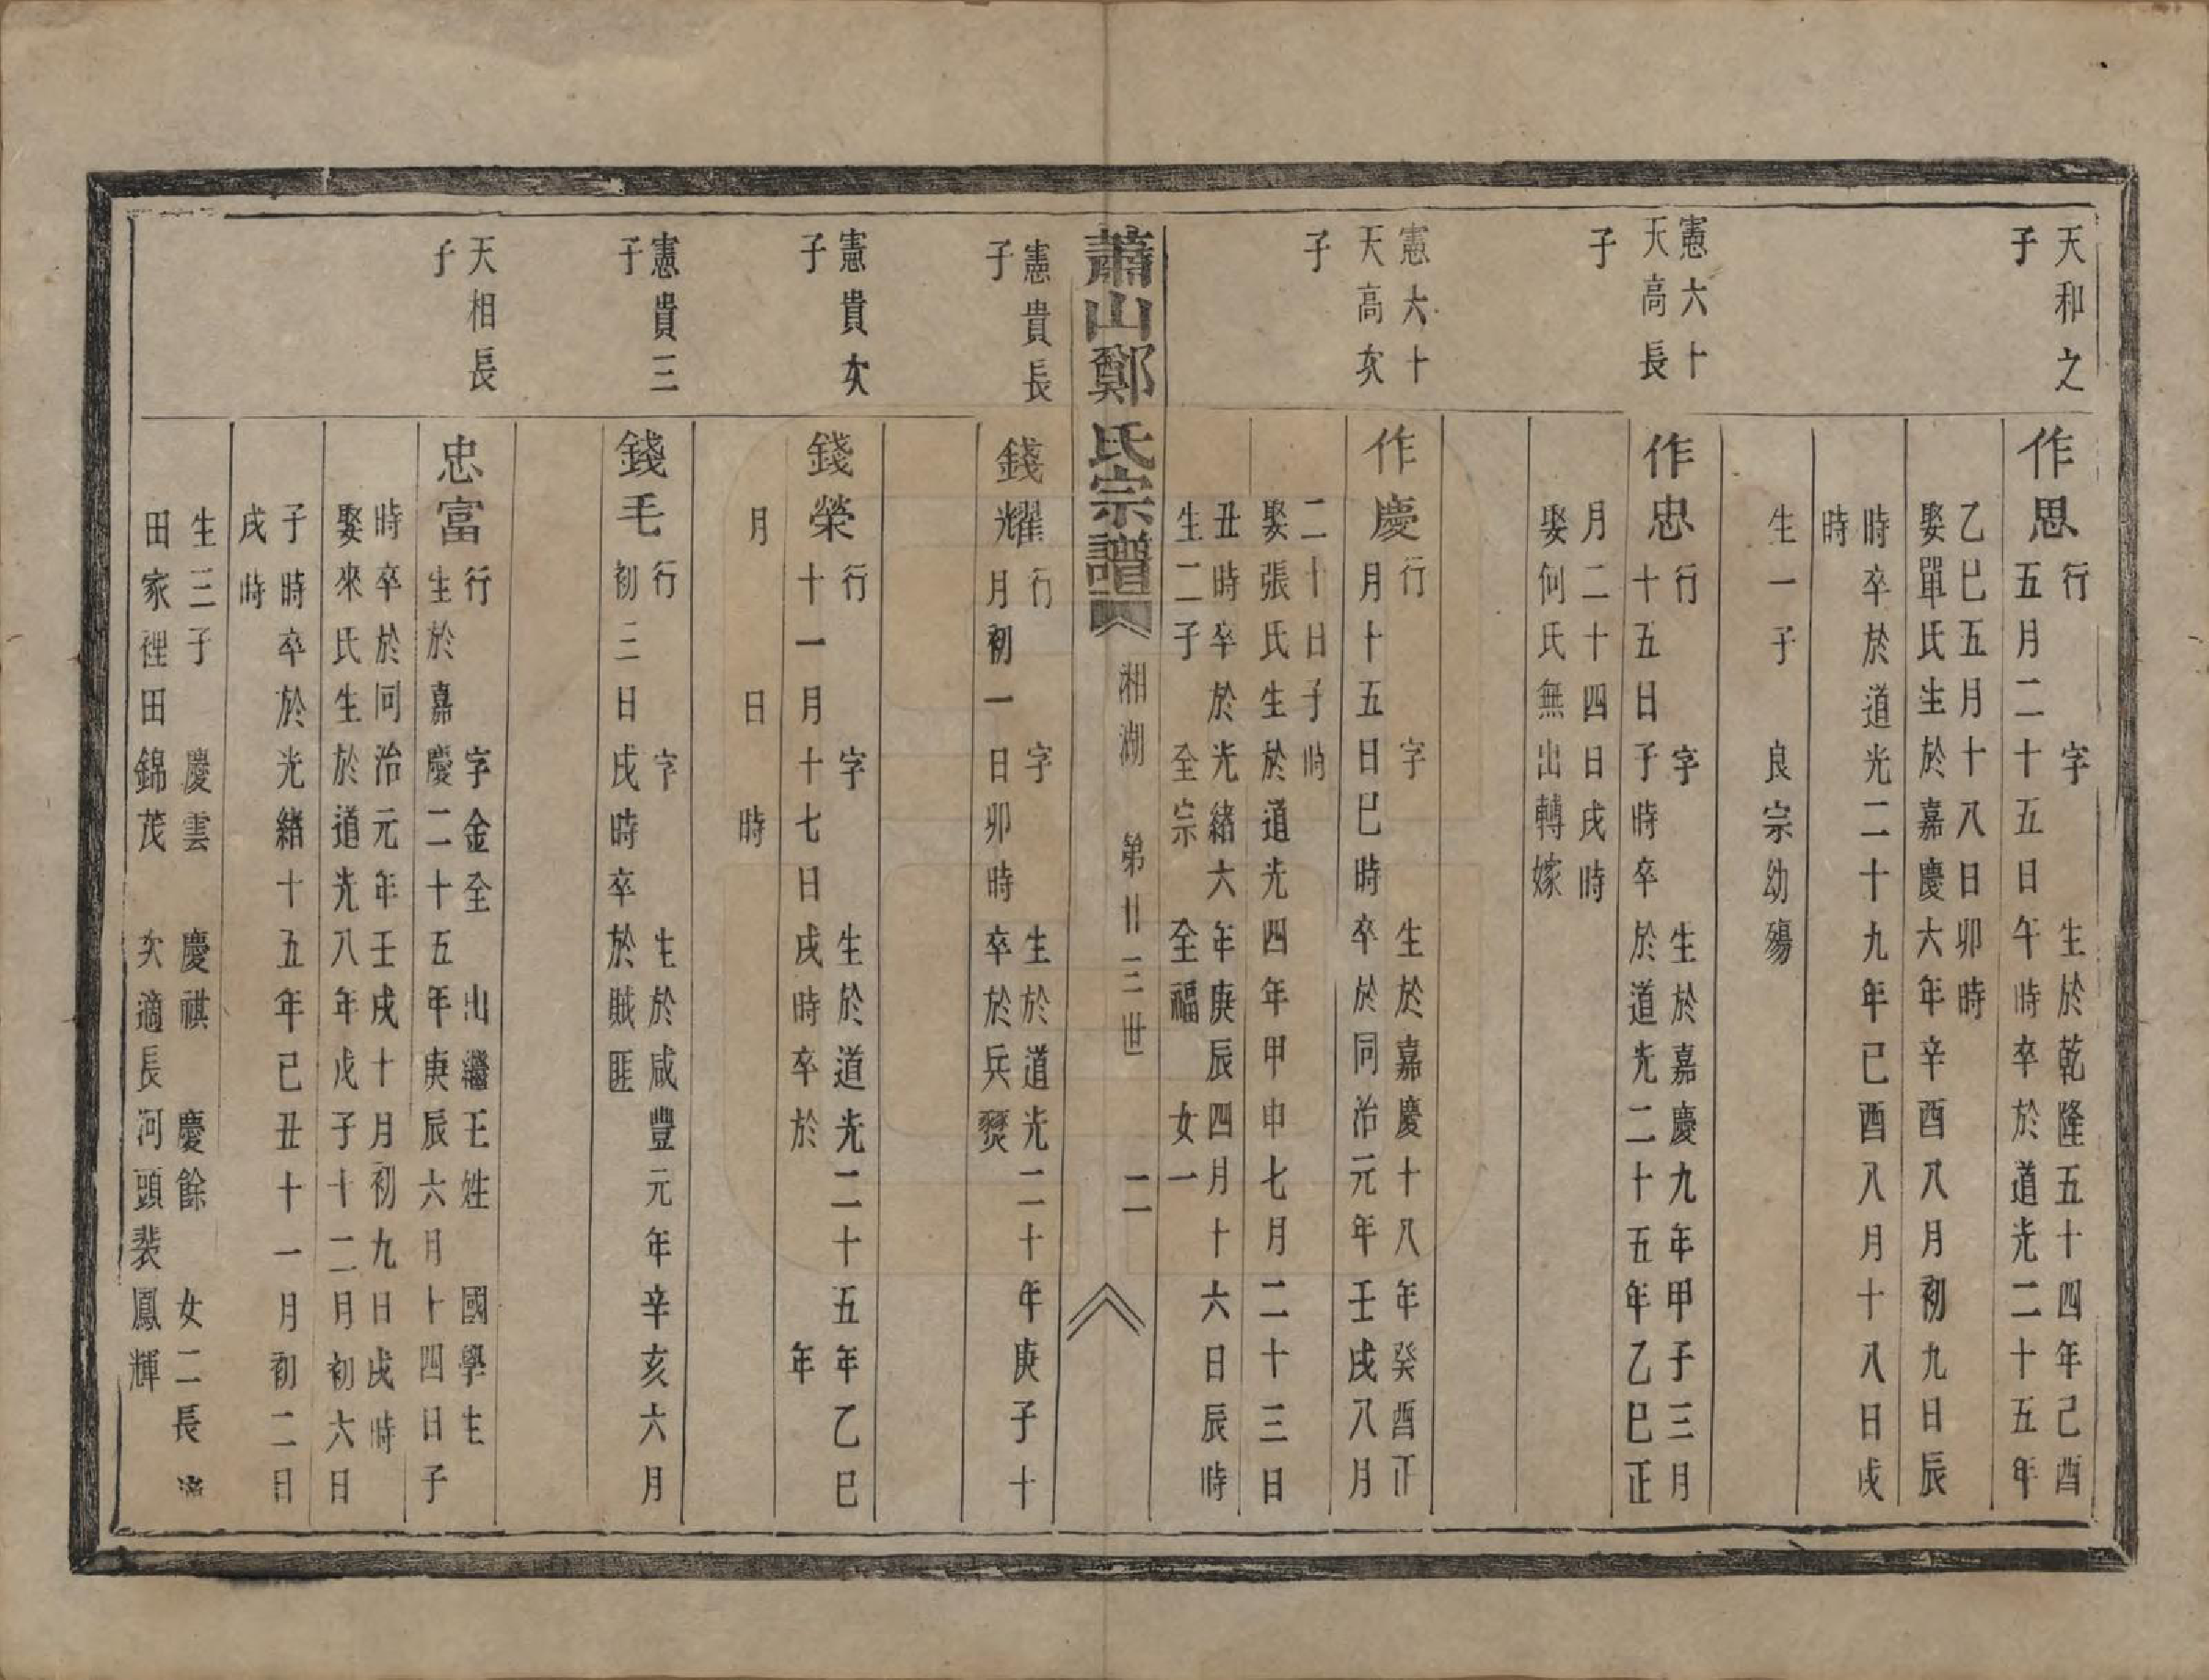 天和之
子
作思行　字　生於乾隆五十四年己酉
五月二十五日午時卒於道光二十五年
乙巳五月十八日卯時
娶單氏生於嘉慶六年辛酉八月初九日辰
時卒於道光二十九年己酉八月十八日戌
時
生一子　良宗幼殤
憲六十
天高長
子
作忠行　字　生於嘉慶九年甲子三月
十五日子時卒於道光二十五年乙巳正
月二十四日戌時
娶何氏無出轉嫁
憲六十
天高次
子
作慶行　字　生於嘉慶十八年癸酉正
月十五日巳時卒於同治元年壬戌八月
二十日子時
娶張氏生於道光四年甲申七月二十三日
丑時卒於光緒六年庚辰四月十六日辰時
生二子　全宗　全福　女一
蕭山鄭氏宗譜　湘湖　第廿三世　二
憲貴長
子
錢耀行　字　生於道光二十年庚子十
月初一日卯時　卒於兵燹
憲貴次
子
錢榮行　字　生於道光二十五年乙巳
十一月十七日戌時卒於　年
月　日　時
憲貴三
子
錢毛行　字　生於咸豐元年辛亥六月
初三日戌時卒於賊匪
天相長
子
忠富行　字金全　出繼王姓　國學生
生於嘉慶二十五年庚辰六月十四日子
時卒於同治元年壬戌十月初九日戌時
娶來氏生於道光八年戊子十二月初六日
子時卒於光緒十五年己丑十一月初二日
戌時
生三子　慶雲　慶祺　慶餘　女二長適
田家裡田錦茂　次適長河頭裴鳳輝